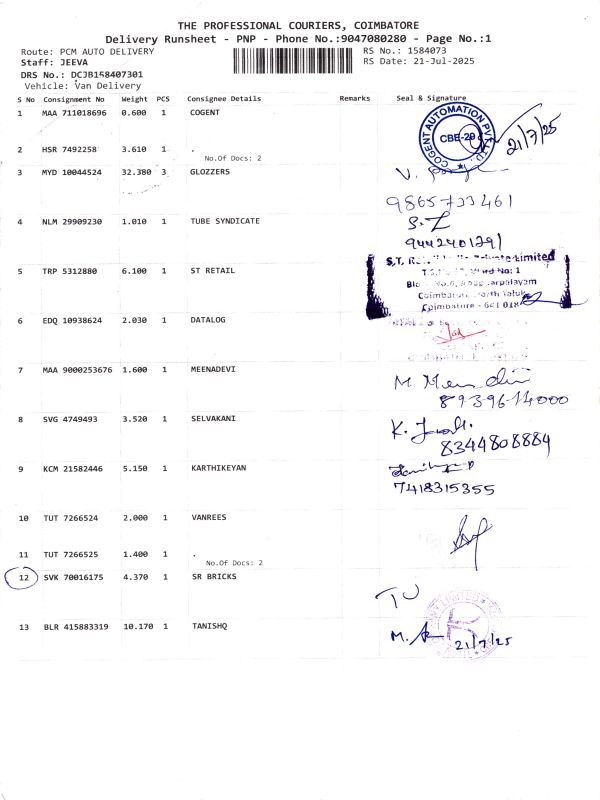 THE PROFESSIONAL COURIERS, COIMBATORE
Delivery Runsheet - PNP - Phone No.:9047080280 - Page No.:1
Route: PCM AUTO DELIVERY
RS No.: 1584073
Staff: JEEVA
RS Date: 21-Jul-2025
DRS No.: DCJB158407301
Vehicle: Van Delivery
S No Consignment No Weight PCS Consignee Details Remarks Seal & Signature
1 MAA 711018696 0.600 1 COGENT
COGENT AUTOMATION PVT. LTD.
CBE-29
21/7/25
2 HSR 7492258 3.610 1 .
No.Of Docs: 2
3 MYD 10044524 32.380 3 GLOZZERS
9865733461
4 NLM 29909230 1.010 1 TUBE SYNDICATE
S.Z
9442401291
5 TRP 5312880 6.100 1 ST RETAIL
S.T. Private Limited
Word No: 1
Coimbatore North Taluk
Coimbatore - 641 018
6 EDQ 10938624 2.030 1 DATALOG
7 MAA 9000253676 1.600 1 MEENADEVI
M.
8939614000
8 SVG 4749493 3.520 1 SELVAKANI
K.
8344808884
9 KCM 21582446 5.150 1 KARTHIKEYAN
7418315355
10 TUT 7266524 2.000 1 VANREES
11 TUT 7266525 1.400 1 .
No.Of Docs: 2
12 SVK 70016175 4.370 1 SR BRICKS
TU
13 BLR 415883319 10.170 1 TANISHQ
M.
21/7/25